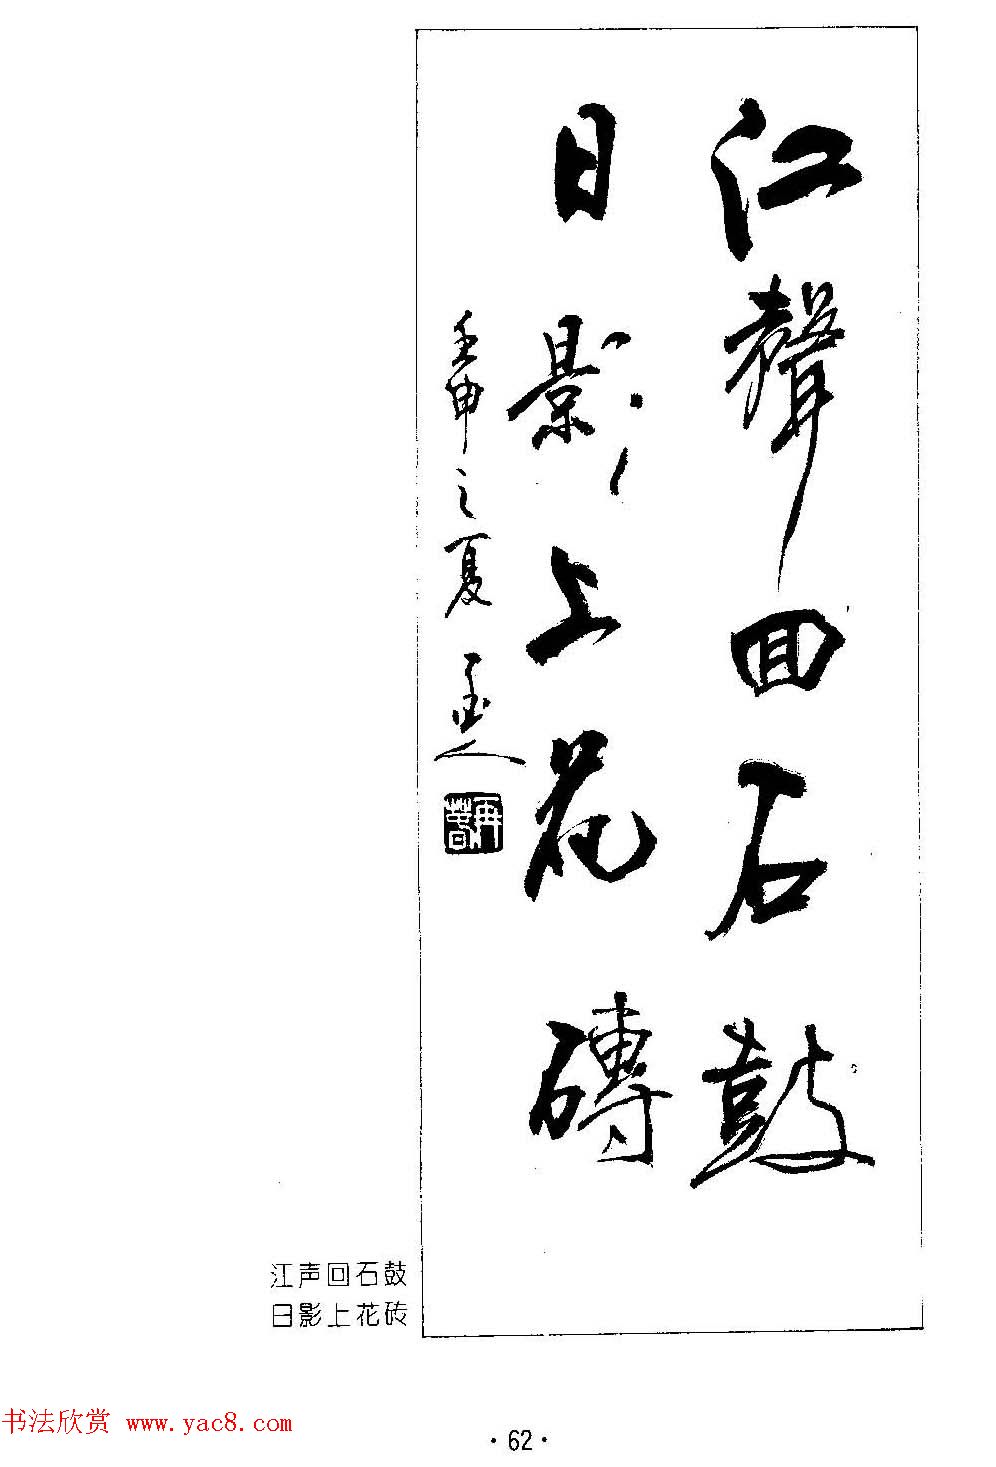 江聲回石鼓
日影上花磚
壬申之夏
江声回石鼓
日影上花砖
书法欣赏 www.yac8.com
·62·